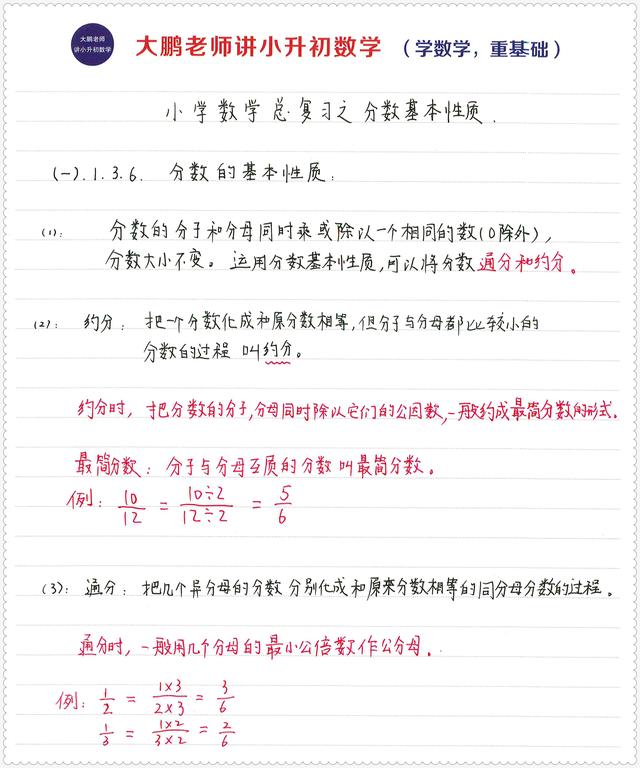 大鹏老师
讲小升初数学
大鹏老师讲小升初数学 (学数学,重基础)
小学数学总复习之分数基本性质.
(一).1.3.6. 分数的基本性质:
(1): 分数的分子和分母同时乘或除以一个相同的数(0除外),
分数大小不变。运用分数基本性质,可以将分数通分和约分。
(2): 约分: 把一个分数化成和原分数相等,但分子与分母都比较小的
分数的过程 叫约分。
约分时, 把分数的分子,分母同时除以它们的公因数,一般约成最简分数的形式。
最简分数: 分子与分母互质的分数叫最简分数。
例: 10/12 = 10÷2/12÷2 = 5/6
(3): 通分: 把几个异分母的分数分别化成和原来分数相等的同分母分数的过程。
通分时,一般用几个分母的最小公倍数作公分母.
例: 1/2 = 1×3/2×3 = 3/6
1/3 = 1×2/3×2 = 2/6